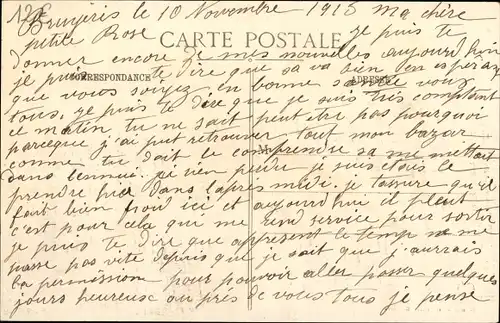 le 10 Novembre 1915 ma chère
petite Rose je puis te
CARTE POSTALE
donner encore de mes nouvelles aujourd hui
je puis te dire que sa va bien en esperan
CORRESPONDANCE ADRESSE
que vous soiyez en bonne santée vous
tous, je puis te dire que je suis très comptant
ce matin, tu ne sait peut être pas pourquoi
parceque j'ai put retrouver tout mon bazar
comme tu doit le comprendre sa me mettait
dans l'ennui rien perdu je suis
prendre dans l'après midi. je t'assure qu'il
fait bien froid ici et aujourd'hui il pleut
c'est pour cela que me rend service pour sortir
je puis te dire que appresent le temp ne me
passe pas vite depuis que je sait que j'aurrais
la permission pour pouvoir aller passer quelques
jours heureuse au près de vous tous je pense